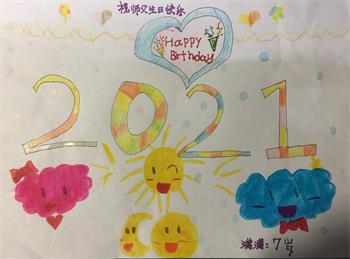 祝师父生日快乐
HAPPY
Birthday
2021
满满:7岁